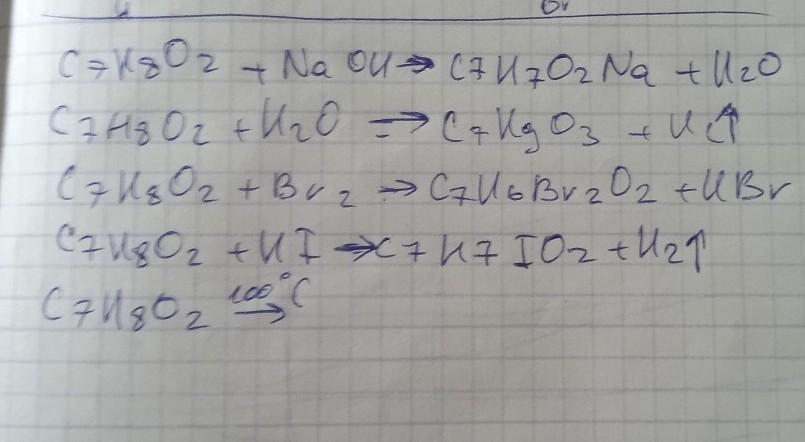 C7H8O2 + NaOH → C7H7O2Na + H2O
C7H8O2 + H2O → C7H9O3 + H↑
C7H8O2 + Br2 → C7H6Br2O2 + HBr
C7H8O2 + HI → C7H7IO2 + H2↑
C7H8O2 100°C →